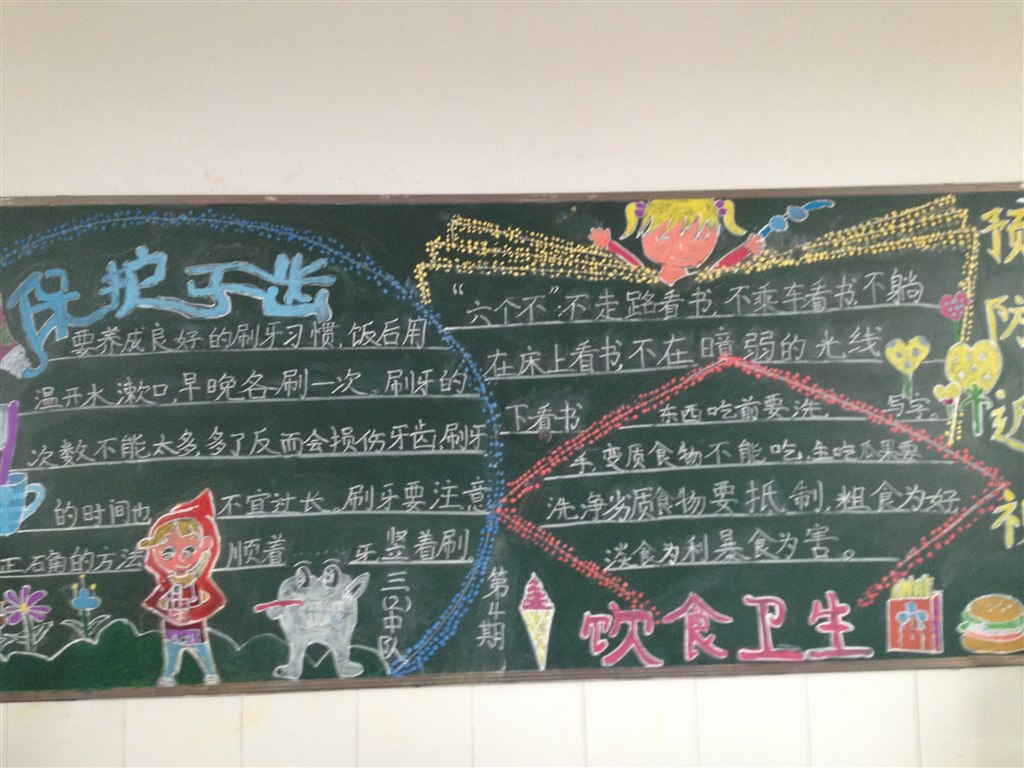 保护牙齿
要养成良好的刷牙习惯,饭后用
温开水漱口,早晚各刷一次。刷牙的
次数不能太多,多了反而会损伤牙齿,刷牙
的时间也不宜过长。刷牙要注意
正确的方法 顺着……牙竖着刷
三(2)中队
第4期
“六个不”:不走路看书,不乘车看书,不躺
在床上看书,不在暗弱的光线
下看书 写字。
东西吃前要洗
手,变质食物不能吃,生吃瓜果要
洗净,劣质食物要抵制,粗食为好,
淡食为利暴食为害。
饮食卫生
预防近视